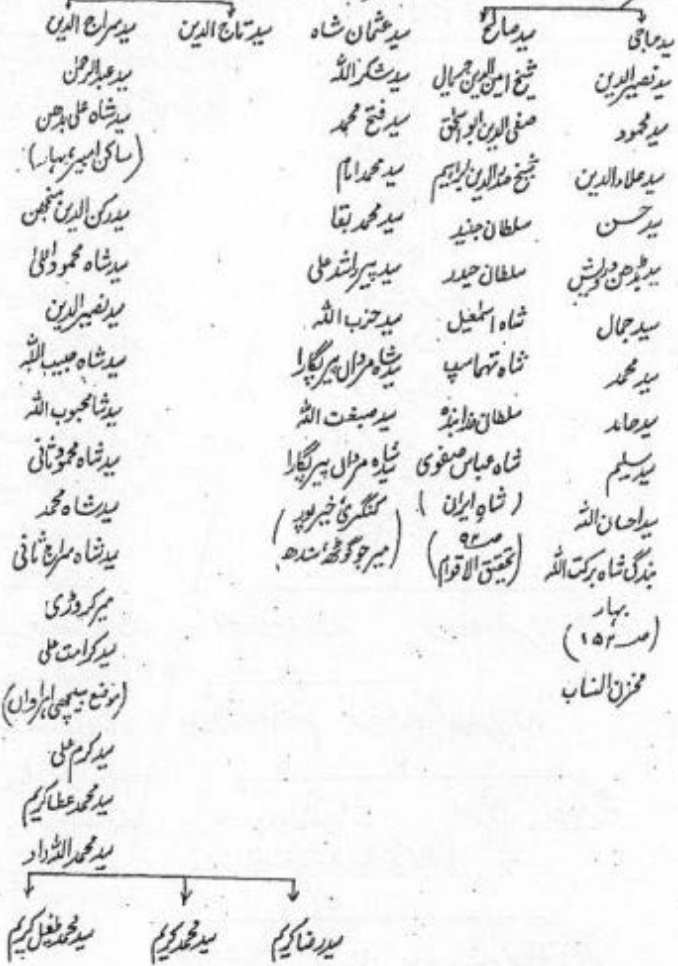 سید حاجی
سید نصیر الدین
سید محمود
سید علاء الدین
سید حسن
سید بڈھن درویش
سید جمال
سید محمد
سید حامد
سید سلیم
سید احسان اللہ
بندگی شاہ برکت اللہ
بہار
(صـ ۱۵۲)
مخزن انساب
سید صالح
شیخ امین الدین جبریال
صفی الدین ابو اسحٰق
شیخ صدر الدین ابراہیم
سلطان جنید
سلطان حیدر
شاہ اسمٰعیل
شاہ تہماسپ
سلطان خدابندہ
شاہ عباس صفوی
(شاہِ ایران)
صـ ۹۲
(تحقیق الاقوام)
سید عثمان شاہ
سید شکر اللہ
سید فتح محمد
سید محمد امام
سید محمد بقا
سید پیر راشد علی
سید حزب اللہ
سید شاہ مردان پیر پگارا
سید صبغت اللہ
سید شاہ مردان پیر پگارا
(کنگری خیرپور
میر جو گوٹھ سندھ)
سید تاج الدین
سید سراج الدین
سید عبدالرحمٰن
سید شاہ علی بڈھن
(ساکن امبیر، بہار)
سید رکن الدین منجھن
سید شاہ محمود
سید نصیر الدین
سید شاہ حبیب اللہ
سید شاہ محبوب اللہ
سید شاہ محمود ثانی
سید شاہ محمد
سید شاہ سراج ثانی
میر کروڑی
سید کرامت علی
(موضع
سید کرم علی
سید محمد عطا کریم
سید محمد اللہ داد
سید رضا کریم
سید محمد کریم
سید محمد طفیل کریم